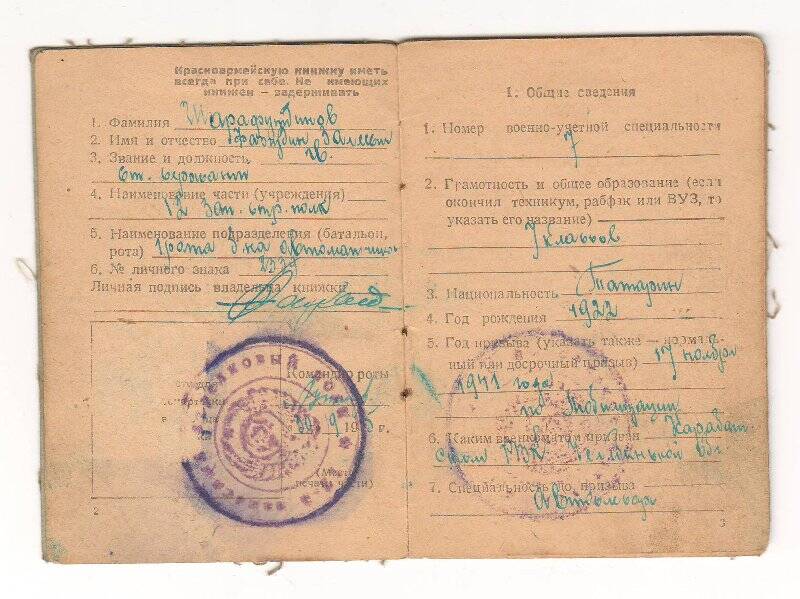 Красноармейскую книжку иметь
всегда при себе. Не имеющих
книжек — задерживать
1. Фамилия Шарафутдинов
2. Имя и отчество
3. Звание и должность
Ст. сержант
4. Наименование части (учреждения)
12 Зап. стр. полк
5. Наименование подразделения (батальон,
рота) 1 рота б-на автоматчиков
6. № личного знака
Личная подпись владельца книжки
Командир роты
г.
(Место
печати части)
2
I. Общие сведения
1. Номер военно-учетной специальности
7
2. Грамотность и общее образование (если
окончил техникум, рабфак или ВУЗ, то
указать его название)
7 классов
3. Национальность Татарин
4. Год рождения 1922
5. Год призыва (указать также — нормаль-
ный или досрочный призыв) 17 ноября
1941 года
по мобилизации
6. Каким военкоматом призван
РВК
7. Специальность до призыва
3